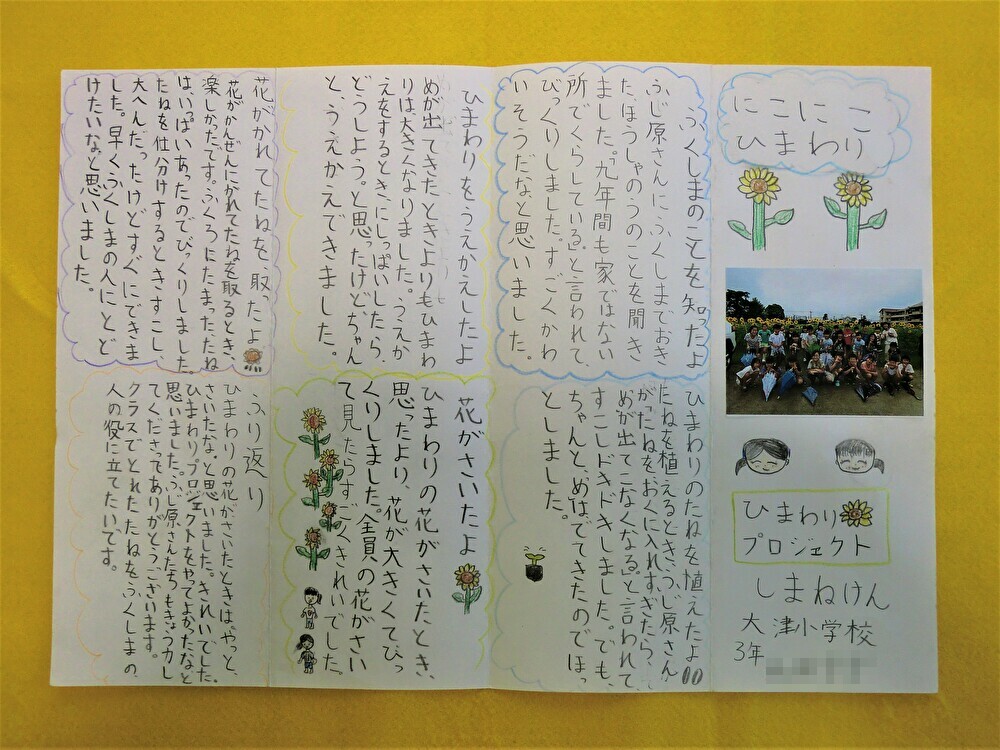 にこにこ
ひまわり
ひまわり
プロジェクト
しまねけん
大津小学校
3年
ふくしまのことを知ったよ
ふじ原さんにふくしまでおき
た、ほうしゃのうのことを聞き
ました。「九年間も家ではない
所でくらしている」と言われて、
びっくりしました。すごくかわ
いそうだなと思いました。
ひまわりのたねを植えたよ
たねを植えるとき、ふじ原さん
が「たねをおくに入れすぎたら、
めが出てこなくなる」と言われて、
すこしドキドキしました。でも、
ちゃんと、めは、でてきたのでほっ
としました。
ひまわりをうえかえしたよ
めが出てきたときよりもひまわ
りは大きくなりました。うえか
えをするときにしっぱいしたら、
どうしよう。と思ったけど、ちゃん
と、うえかえできました。
花がさいたよ
ひまわりの花がさいたとき、
思ったより、花が大きくてびっ
くりしました。全員の花がさい
て見たらすごくきれいでした。
花がかれてたねを取ったよ
花がかんぜんにかれてたねを取るとき、
楽しかったです。ふくろにたまった、たね
は、いっぱいあったのでびっくりしました。
たねを仕分けするときすこし
大へんだったけどすぐにできま
した。早くふくしまの人にとど
けたいなと思いました。
ふり返り
ひまわりの花がさいたときは、やっと、
さいたな。と思いました。きれいでした。
ひまわりプロジェクトをやってよかったなと
思いました。ふじ原さんたちもきょう力し
てくださってありがとうございます。
クラスでとれたたねをふくしまの
人の役に立てたいです。